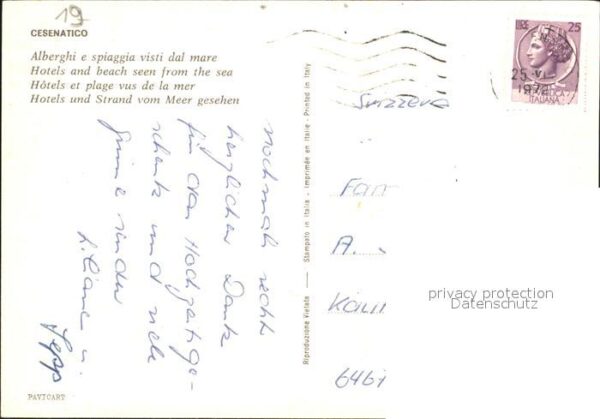 19
CESENATICO
Alberghi e spiaggia visti dal mare
Hotels and beach seen from the sea
Hôtels et plage vus de la mer
Hotels und Strand vom Meer gesehen
nochmals recht
herzlichen Dank
für das Hochzeitsge-
schenk und viele
Grüsse senden
Liliane u.
Sepp
PAVTCART
Riproduzione Vietata — Stampato in Italia - Imprimée en Italie - Printed in Italy
25
25 VI
1972
ITALIANA
Svizzera
Fam
A.
Kau
privacy protection
Datenschutz
646